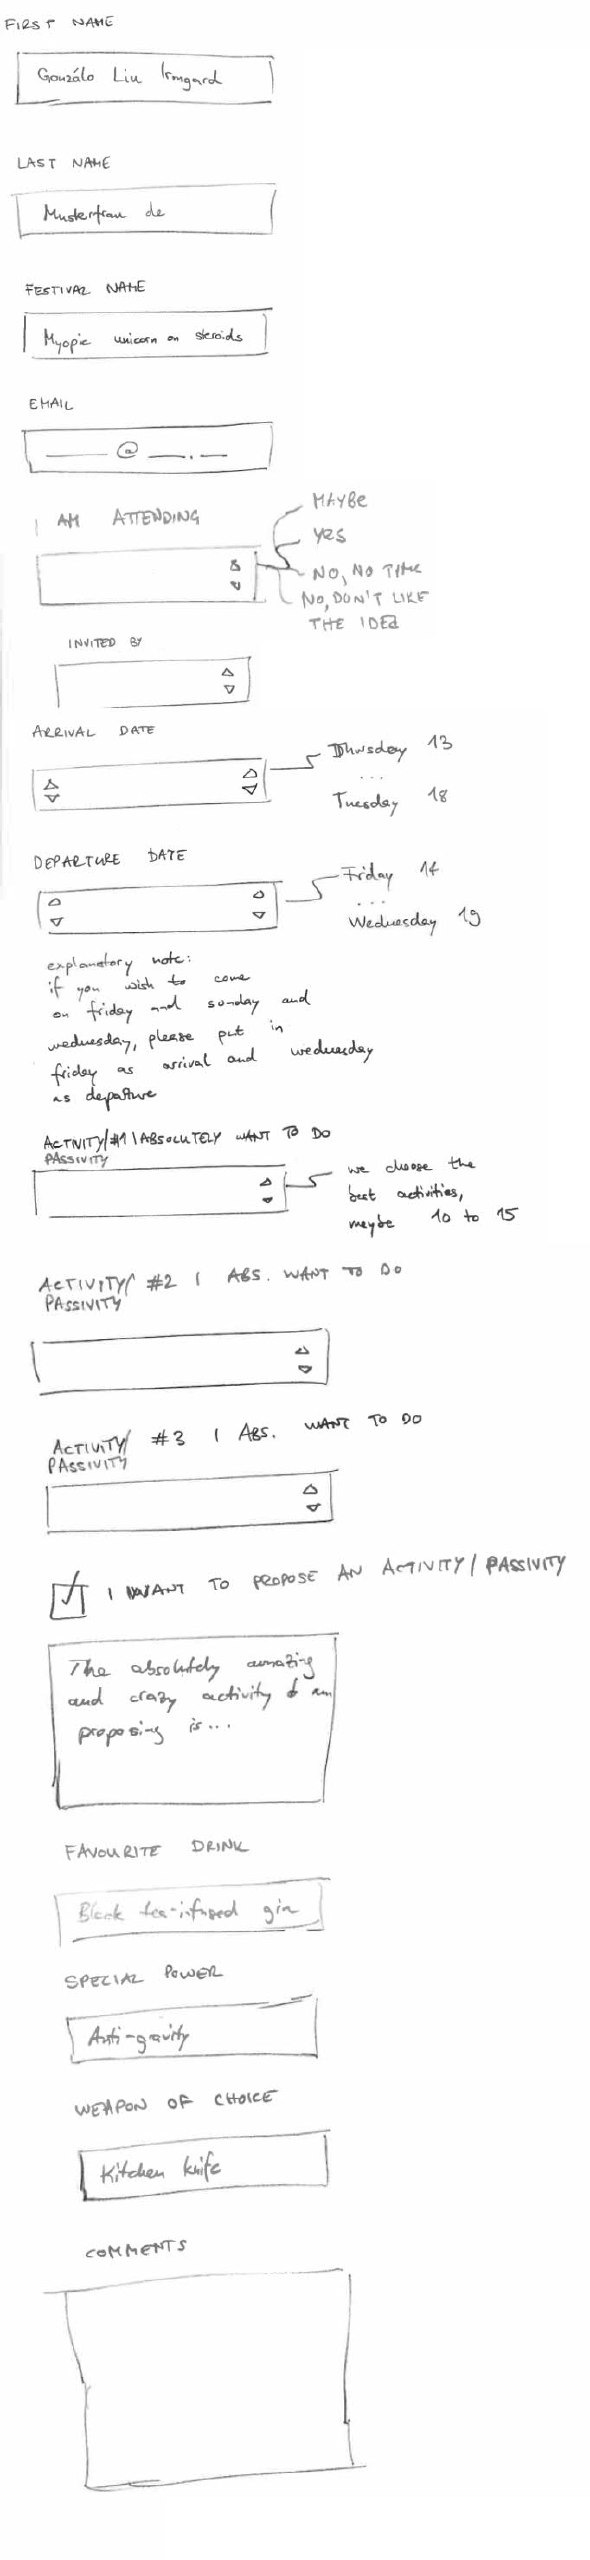 FIRST NAME
Gonzálo Liu Irmgard
LAST NAME
Musterfrau de
FESTIVAL NAME
Myopic unicorn on steroids
EMAIL
@ .
I AM ATTENDING
MAYBE
YES
NO, NO TIME
NO, DON'T LIKE
THE IDEA
INVITED BY
ARRIVAL DATE
Thursday 13
...
Tuesday 18
DEPARTURE DATE
Friday 14
...
Wednesday 19
explanatory note:
if you wish to come
on friday and sunday and
wednesday, please put in
friday as arrival and wednesday
as departure
ACTIVITY/#1 I ABSOLUTELY WANT TO DO
PASSIVITY
we choose the
best activities,
maybe 10 to 15
ACTIVITY/ #2 I ABS. WANT TO DO
PASSIVITY
ACTIVITY/ #3 I ABS. WANT TO DO
PASSIVITY
I WANT TO PROPOSE AN ACTIVITY/PASSIVITY
The absolutely amazing
and crazy activity I am
proposing is...
FAVOURITE DRINK
Black tea-infused gin
SPECIAL POWER
Anti-gravity
WEAPON OF CHOICE
Kitchen knife
COMMENTS